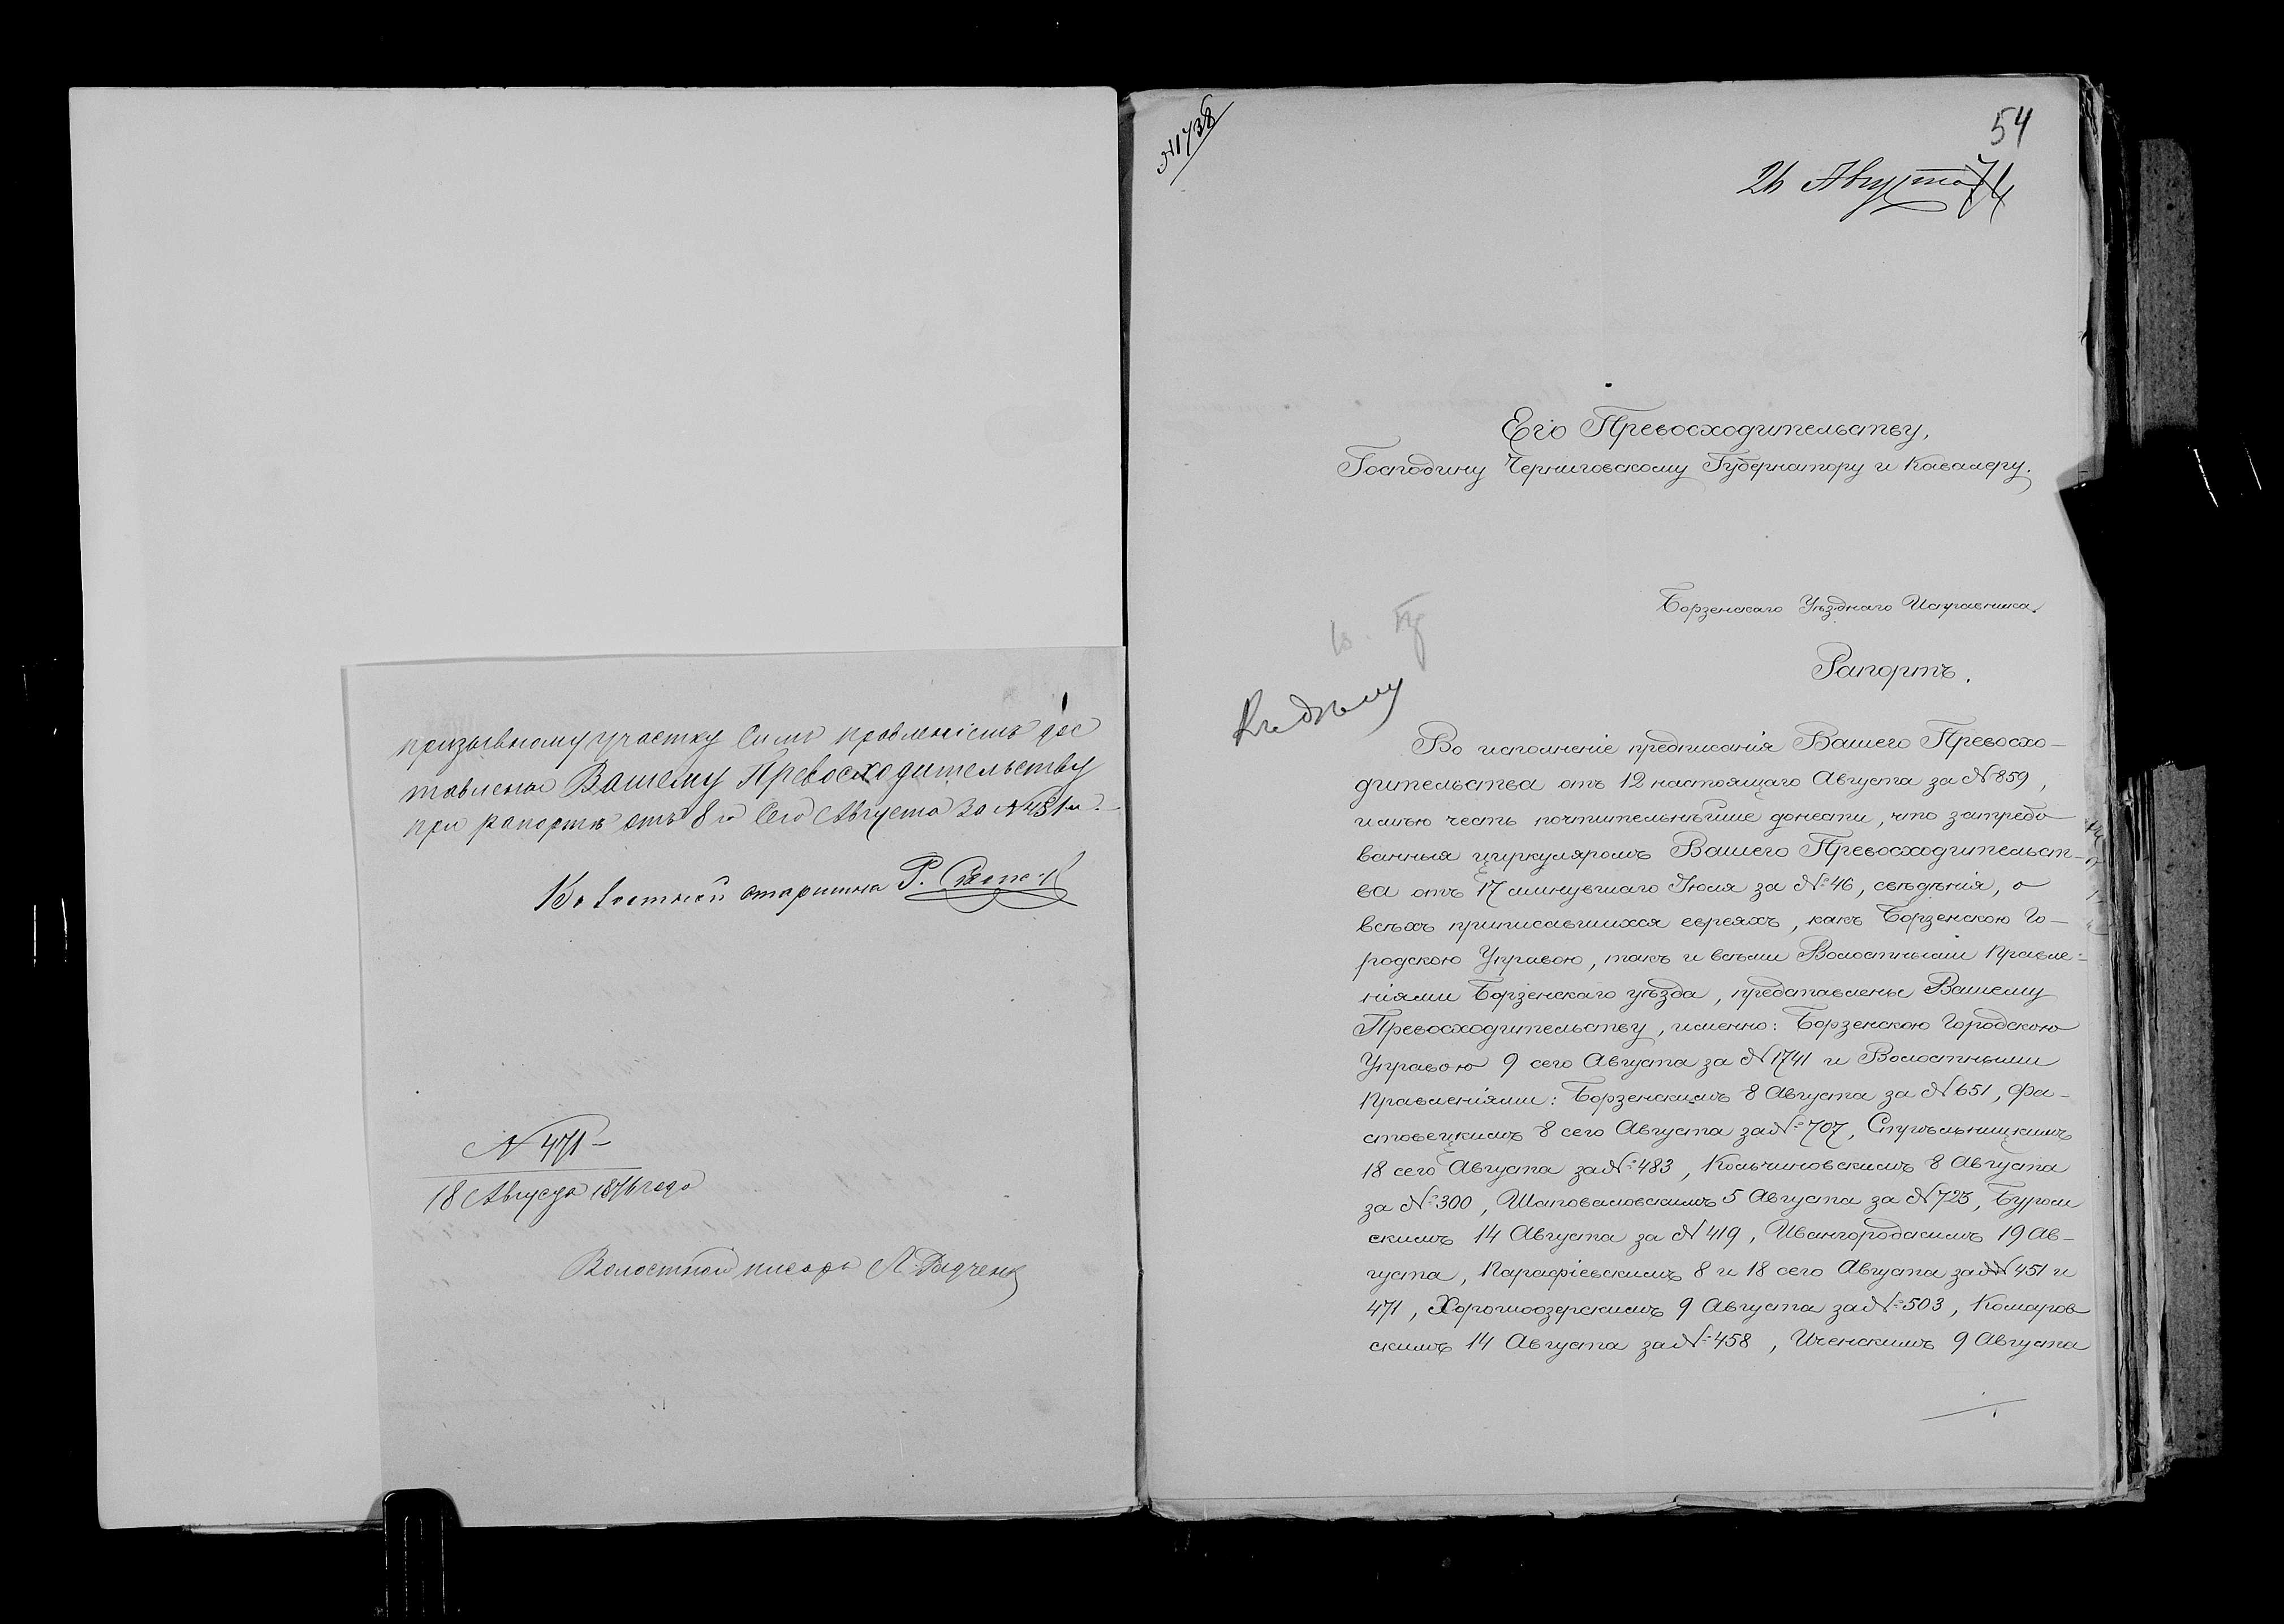 призывному участку симъ правленіемъ дос
тавлены Вашему Превосходительству
при рапортѣ отъ 8 го сего Августа за № 451 м.
Волостной старшина Р.
№ 471
18 Августа 1876 года
Волостной писарь Л. Радченко
№ 1738
54
26 Августа
Его Превосходительству,
Господину Черниговскому Губернатору и Кавалеру.
Борзенскаго Уѣзднаго Исправника.
Рапортъ.
Къ дѣлу
Во исполненіе предписанія Вашего Превосхо-
дительства отъ 12 настоящаго Августа за № 859,
имѣю честь почтительнѣйше донести, что затребо
ванныя циркуляромъ Вашего Превосходительст-
ва отъ 17 минувшаго Іюля за № 46, свѣдѣнія, о
всѣхъ приписавшихся евреяхъ, какъ Борзенскою Го-
родскою Управою, такъ и всѣми Волостными Правле-
ніями Борзенскаго уѣзда, представлены Вашему
Превосходительству, именно: Борзенскою Городскою
Управою 9 сего Августа за № 1741 и Волостными
Правленіями: Борзенскимъ 8 Августа за № 651, Фа-
стовецкимъ 8 сего Августа за № 707, Стрѣльницкимъ
18 сего Августа за № 483, Кольчиновскимъ 8 Августа
за № 300, Шаповаловскимъ 5 Августа за № 723, Буром
скимъ 14 Августа за № 419, Ивангородскимъ 19 Ав-
густа, Парафіевскимъ 8 и 18 сего Августа за №№ 451 и
471, Хорошоозерскимъ 9 Августа за № 503, Комаров
скимъ 14 Августа за № 458, Иченскимъ 9 Августа